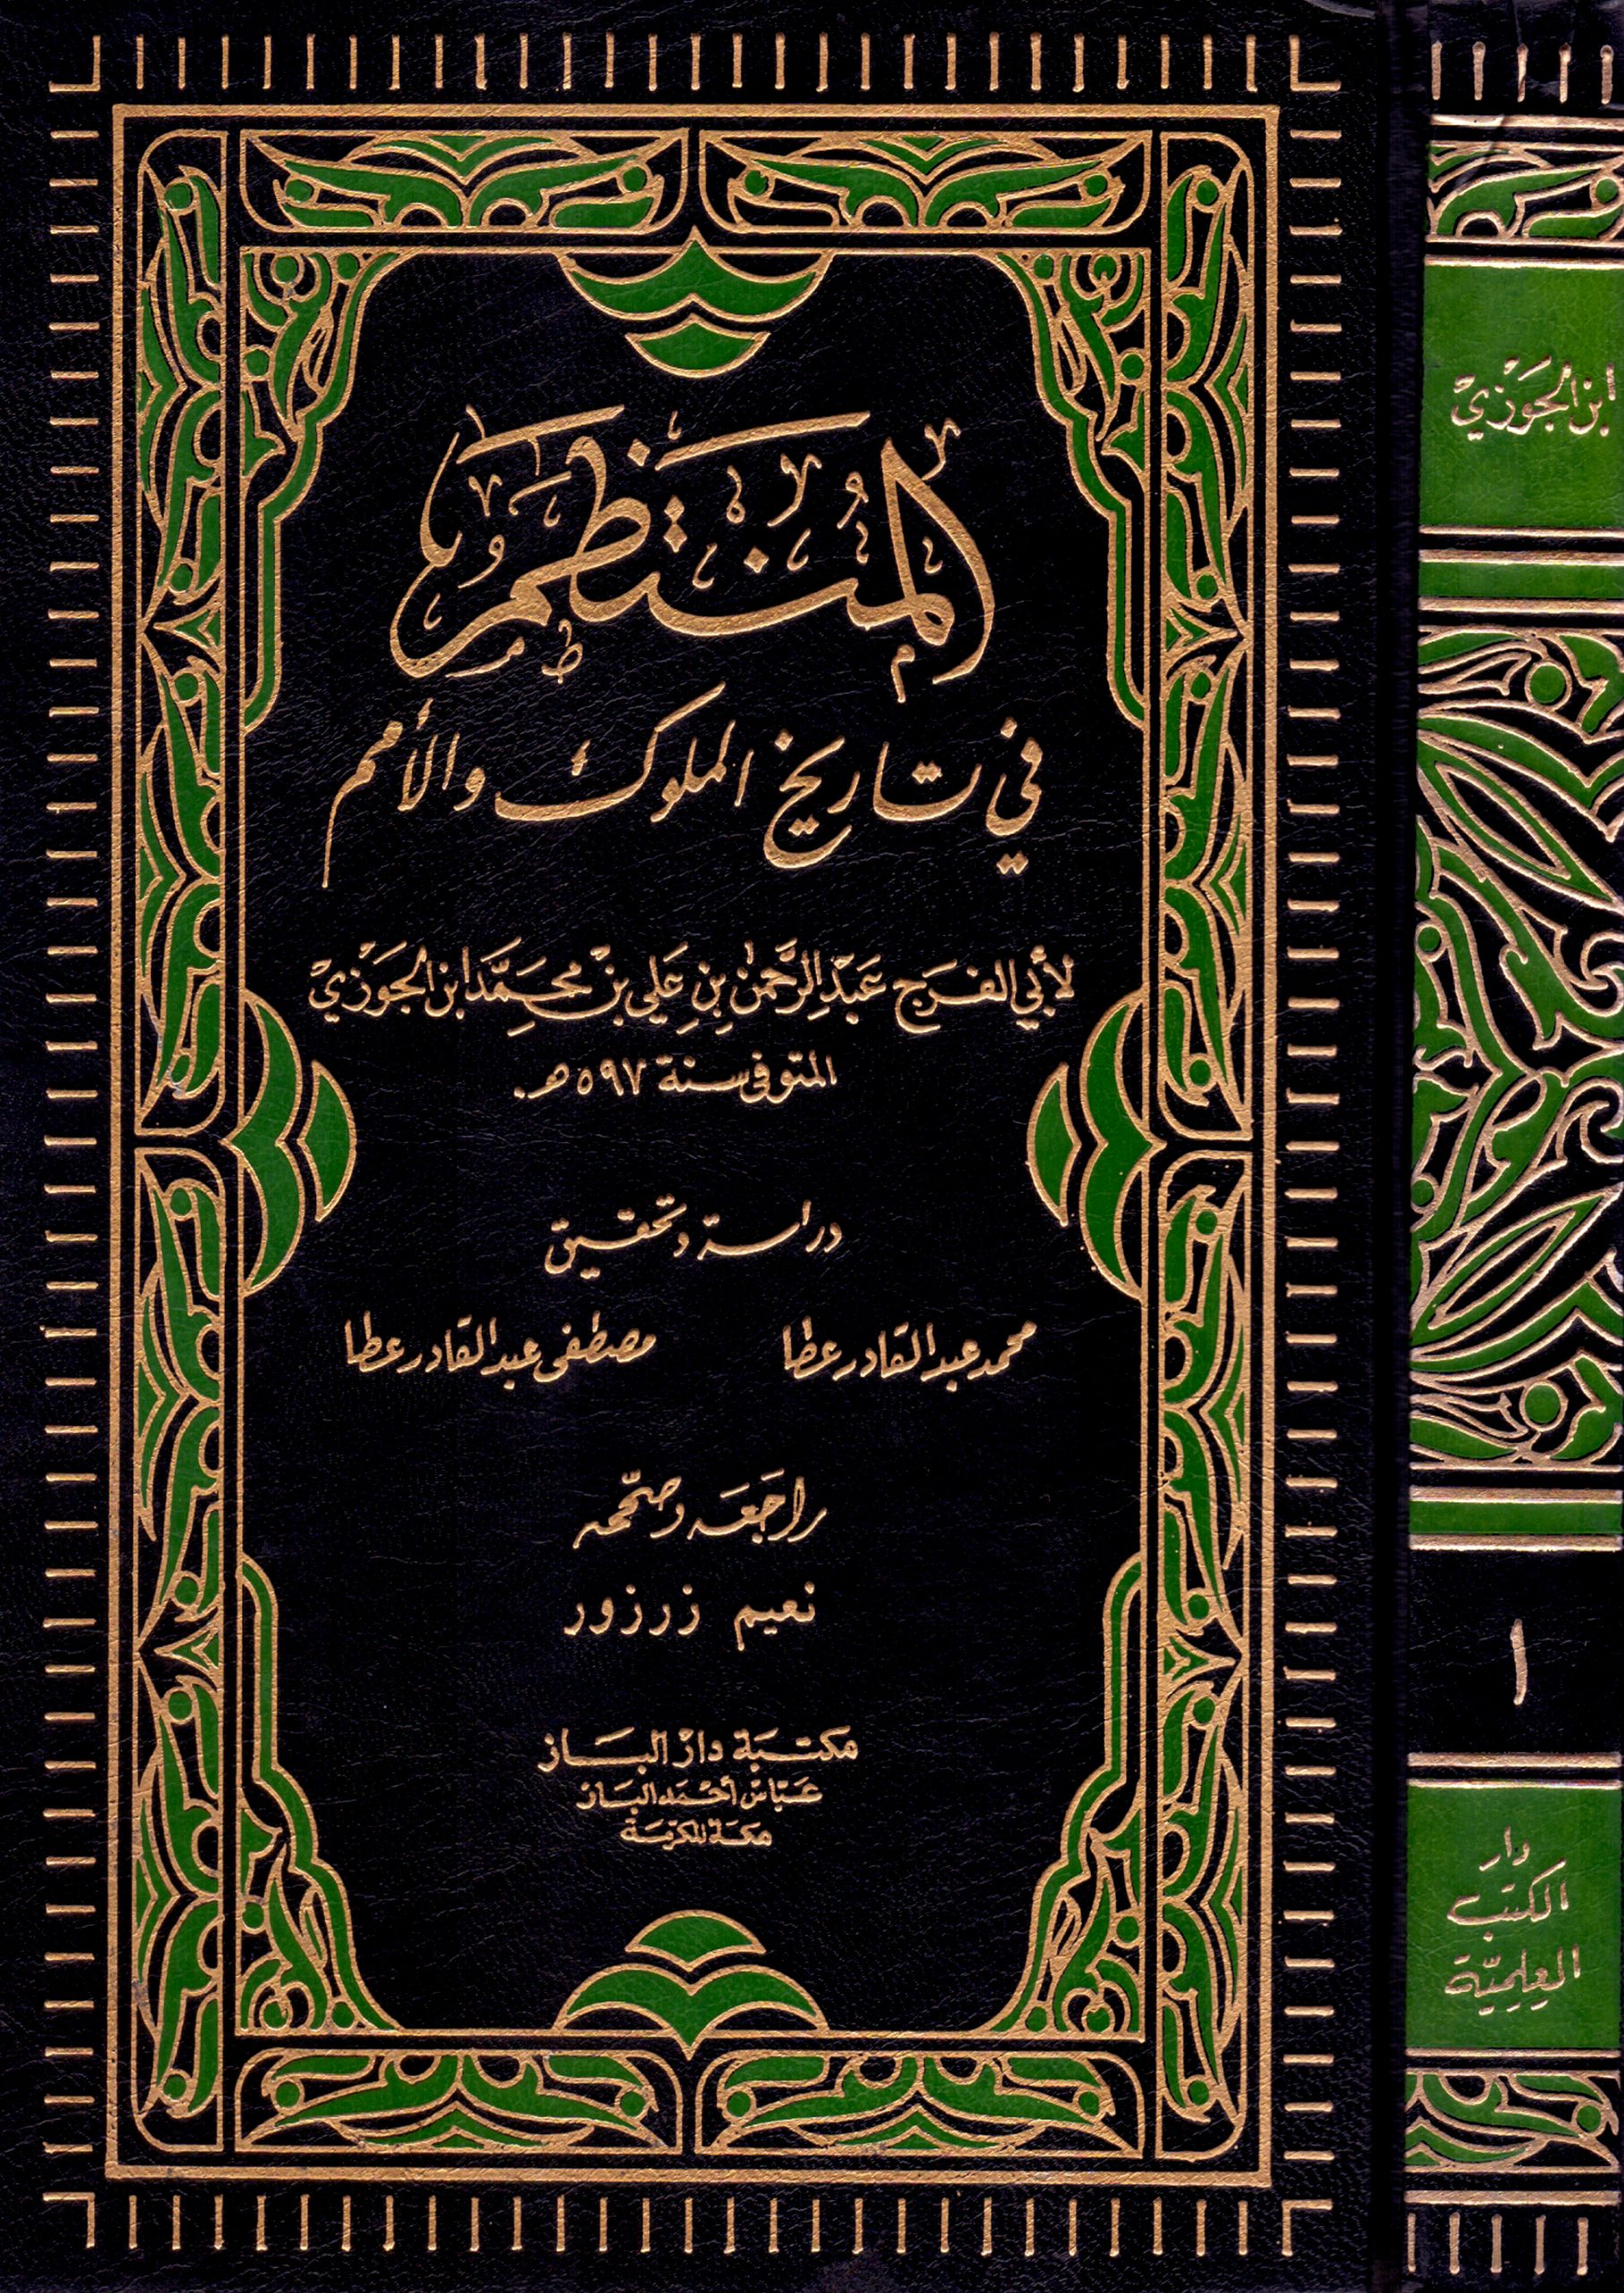 المُنتَظِم
في تاريخ الملوك والأمم
لأبي الفَرَج عَبْد الرَّحمٰن بنِ عَلي بنْ محَمَّد ابن الجَوْزيْ
المتوفى سنة ٥٩٧ هـ.
دراسة وتحقيق
محمد عبد القادر عطا مصطفى عبد القادر عطا
راجَعَه وصحّحه
نعيم زرزور
مكتبَة دار البَاز
عَبّاس أحْمَد البَاز
مكة المكرّمَة
ابن الجَوْزيْ
١
دار
الكتب
العِلميَّة